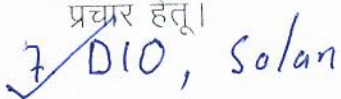 प्रचार हेतू।
7 DIO, Solan